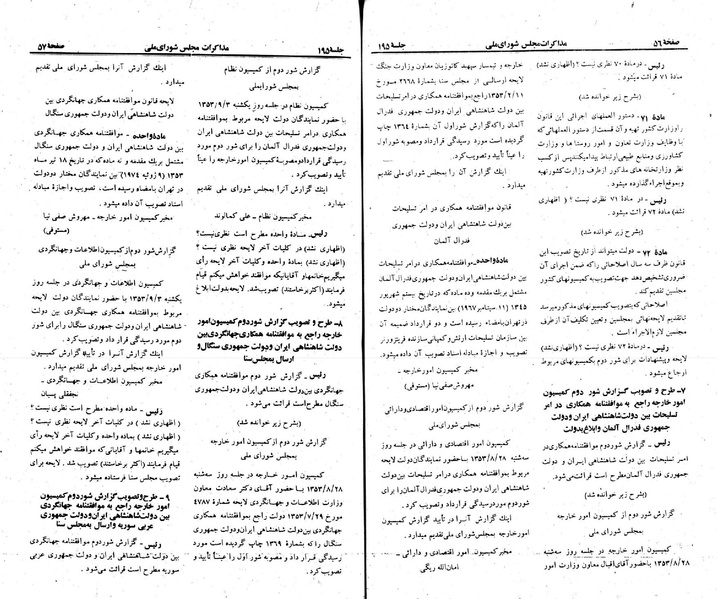 صفحهٔ ۵۶ مذاکرات مجلس شورای‌ملی جلسهٔ ۱۹۵
رئیس - درمادهٔ ۷۰ نظری نیست ؟ (اظهاری نشد)
مادهٔ ۷۱ قرائت میشود .
(بشرح زیر خوانده شد)
مادهٔ ۷۱ - دستور العملهای اجرائی این قانون
راوزارت کشور تهیه و آن قسمت از دستور العملهائی که
با وظایف وزارت تعاون و امور روستاها و وزارت
کشاورزی و منابع طبیعی ارتباط پیدامیکند پس از کسب
نظر وزارتخانه های مذکور از طرف وزارت کشور تهیه
و بموقع اجراگذارده میشود .
رئیس - در مادهٔ ۷۱ نظری نیست ؟ ( اظهاری
نشد) مادهٔ ۷۲ قرائت میشود .
(بشرح زیر خوانده شد)
مادهٔ ۷۲ - دولت میتواند از تاریخ تصویب این
قانون ظرف سه سال اصلاحاتی راکه ضمن اجرای آن
ضروری تشخیص دهد جهت تصویب به کمیسیونهای کشور
مجلسین تقدیم کند .
اصلاحاتی که بتصویب کمیسیونهای مذکور میرسد
تا تقدیم لایحه نهائی بمجلسین وتعیین تکلیف آن از طرف
مجلسین لازم الاجراء است .
رئیس - در مادهٔ ۷۲ نظری نیست ؟ (اظهاری نشد)
لایحه و پیشنهادات برای شور دوم بکمیسیونهای مربوط
ارجاع میشود .
۷- طرح و تصویب گزارش شور دوم کمیسیون
امور خارجه راجع به موافقتنامه همکاری در امر
تسلیحات بین دولت شاهنشاهی ایران ودولت
جمهوری فدرال آلمان وابلاغ بدولت
رئیس - گزارش شور دوم موافقتنامه همکاری در
امر تسلیحات بین دولت شاهنشاهی ایران و دولت
جمهوری فدرال آلمان مطرح است قرائت میشود .
(بشرح زیر خوانده شد)
گزارش شور دوم از کمیسیون امور خارجه
بمجلس شورای ملی
کمیسیون امور خارجه در جلسه روز سه‌شنبه
۱۳۵۳/۸/۲۸ با حضور آقای اقبال معاون وزارت امور
خارجه و تیمسار سپهبد کاتوزیان معاون وزارت جنگ
لایحه ارسالی از مجلس سنا بشمارهٔ ۲۶۶۸ مورخ
۱۳۵۳/۲/۱۱ راجع بموافقتنامه همکاری در امر تسلیحات
بین دولت شاهنشاهی ایران و دولت جمهوری فدرال
آلمان راکه گزارش شور اول آن بشمارهٔ ۱۳۶۴ چاپ
گردیده است مورد رسیدگی قرارداد و مصوبه شور اول
را عیناً تأیید و تصویب کرد .
اینک گزارش آن را بمجلس شورای ملی تقدیم
میدارد .
قانون موافقتنامه همکاری در امر تسلیحات
بین دولت شاهنشاهی ایران ودولت جمهوری
فدرال آلمان
مادهٔ واحده - موافقتنامه همکاری در امر تسلیحات
بین دولت شاهنشاهی ایران و دولت جمهوری فدرال آلمان
مشتمل بریک مقدمه و ده ماده که در تاریخ بیستم شهریور
۱۳۴۵ (۱۱ سپتامبر ۱۹۶۷) بین نمایندگان مختار دو دولت
در تهران بامضاء رسیده است و دو قرارداد ضمیمه آن
بین سازمان تسلیحات ارتش و کمپانی سازنده
تصویب و اجازهٔ مبادله اسناد تصویب آن داده میشود .
مخبر کمیسیون امور خارجه -
مهوش صفی نیا (مستوفی)
گزارش شور دوم از کمیسیون امور اقتصادی و دارائی
بمجلس شورای ملی
کمیسیون امور اقتصادی و دارائی در جلسه روز
سه‌شنبه ۱۳۵۳/۸/۲۸ با حضور نمایندگان دولت لایحه
مربوط بموافقتنامه همکاری در امر تسلیحات بین دولت
شاهنشاهی ایران ودولت جمهوری فدرال آلمان را برای
شور دوم مورد رسیدگی قرارداد و تصویب کرد .
اینک گزارش آنرا در تأیید گزارش کمیسیون
امور خارجه بمجلس شورای ملی تقدیم میدارد .
مخبر کمیسیون امور اقتصادی و دارائی -
امان‌الله ریگی
جلسهٔ ۱۹۵ مذاکرات مجلس شورای ملی صفحهٔ ۵۷
گزارش شور دوم از کمیسیون نظام
بمجلس شورایملی
کمیسیون نظام در جلسه روز یکشنبه ۱۳۵۳/۹/۳
با حضور نمایندگان دولت لایحه مربوط بموافقتنامه
همکاری در امر تسلیحات بین دولت شاهنشاهی ایران
و دولت جمهوری فدرال آلمان را برای شور دوم مورد
رسیدگی قرارداد و مصوبهٔ کمیسیون امور خارجه را عیناً
تأیید و تصویب کرد .
اینک گزارش آنرا بمجلس شورای ملی تقدیم
میدارد .
مخبر کمیسیون نظام - علی کمالوند
رئیس - مادهٔ واحده مطرح است نظری نیست ؟
(اظهاری نشد) در کلیات آخر لایحه نظری نیست ؟
(اظهاری نشد) بماده واحده و کلیات آخر لایحه رأی
میگیریم خانمها و آقایانیکه موافقند خواهش میکنم قیام
فرمایند (اکثر برخاستند) تصویب شد. لایحه بدولت ابلاغ
میشود .
۸- طرح و تصویب گزارش شور دوم کمیسیون امور
خارجه راجع به موافقتنامه همکاری جهانگردی بین
دولت شاهنشاهی ایران ودولت جمهوری سنگال و
ارسال به مجلس سنا
رئیس - گزارش شور دوم موافقتنامه همکاری
جهانگردی بین دولت شاهنشاهی ایران ودولت جمهوری
سنگال مطرح است قرائت میشود .
(بشرح زیر خوانده شد)
گزارش شور دوم از کمیسیون امور خارجه
بمجلس شورای ملی
کمیسیون امور خارجه در جلسه روز سه‌شنبه
۱۳۵۳/۸/۲۸ با حضور آقای دکتر سعادت معاون
وزارت اطلاعات و جهانگردی لایحه شمارهٔ ۴۷۸۷
مورخ ۱۳۵۳/۷/۲۹ دولت راجع به موافقتنامه همکاری
جهانگردی بین دولت شاهنشاهی ایران ودولت جمهوری
سنگال را که بشمارهٔ ۱۳۶۹ چاپ گردیده است مورد
رسیدگی قرار داد و مصوبه شور اول را عیناً تأیید و
تصویب کرد .
اینک گزارش آنرا بمجلس شورای ملی تقدیم
میدارد .
لایحه قانون موافقتنامه همکاری جهانگردی بین
دولت شاهنشاهی ایران ودولت جمهوری سنگال
مادهٔ واحده - موافقتنامه همکاری جهانگردی بین
دولت شاهنشاهی ایران ودولت جمهوری سنگال
مشتمل بریک مقدمه و نه ماده که در تاریخ ۱۸ تیر ماه
۱۳۵۳ (۹ ژوئیه ۱۹۷۴) بین نمایندگان مختار دو دولت
در تهران بامضاء رسیده است ، تصویب و اجازهٔ مبادله
اسناد تصویب آن داده میشود .
مخبر کمیسیون امور خارجه - مهوش صفی نیا
(مستوفی)
گزارش شور دوم از کمیسیون اطلاعات و جهانگردی
بمجلس شورای ملی
کمیسیون اطلاعات و جهانگردی در جلسه روز
یکشنبه ۱۳۵۳/۹/۳ با حضور نمایندگان دولت لایحه
مربوط به موافقتنامه همکاری جهانگردی بین دولت
شاهنشاهی ایران ودولت جمهوری سنگال را برای شور
دوم مورد رسیدگی قرارداد و تصویب کرد .
اینک گزارش آنرا در تأیید گزارش کمیسیون
امور خارجه بمجلس شورای ملی تقدیم میدارد .
مخبر کمیسیون اطلاعات و جهانگردی -
نجفقلی پسیان
رئیس - ماده واحده مطرح است نظری نیست ؟
( اظهاری نشد ) در کلیات آخر لایحه نظری نیست ؟
( اظهاری نشد ) بماده واحده و کلیات آخر لایحه رأی
میگیریم خانمها و آقایانی که موافقند خواهش میکنم
قیام فرمایند (اکثر برخاستند) تصویب شد . لایحه برای
تصویب مجلس سنا فرستاده میشود .
۹- طرح و تصویب گزارش شور دوم کمیسیون
امور خارجه راجع به موافقتنامه جهانگردی
بین دولت شاهنشاهی ایران ودولت جمهوری
عربی سوریه و ارسال به مجلس سنا
رئیس - گزارش شور دوم موافقتنامه جهانگردی
بین دولت شاهنشاهی ایران و دولت جمهوری عربی
سوریه مطرح است قرائت می‌شود .